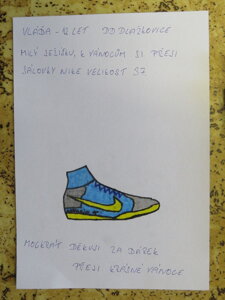 VLÁĎA - 12 LET DD DLAŽKOVICE
MILÝ JEŽÍŠKU, K VÁNOCŮM SI PŘEJI
SÁLOVKY NIKE VELIKOST 37
MOCKRÁT DĚKUJI ZA DÁREK
PŘEJI KRÁSNÉ VÁNOCE